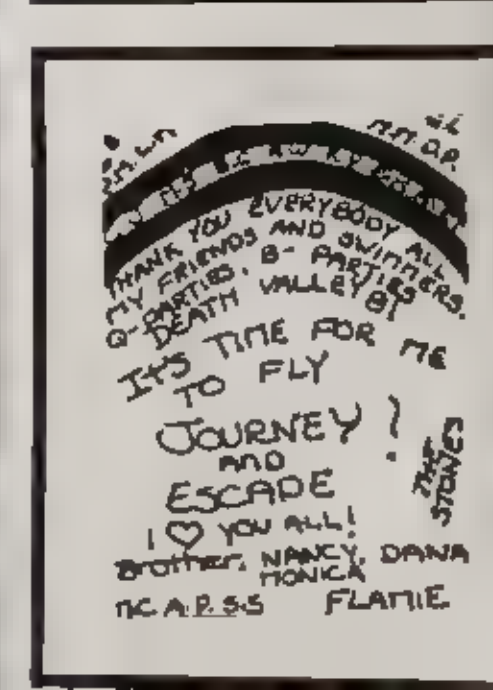 M.M. O.P.
THANK YOU EVERYBODY ALL
MY FRIENDS AND SWIMMERS.
Q-PARTIES, B-PARTIES
DEATH VALLEY 81
IT'S TIME FOR ME
TO FLY
JOURNEY!
AND
ESCAPE
THE STONES
I ♡ YOU ALL!
Brother, NANCY, DANA
MONICA
M.C. A.P. S.S FLAMIE